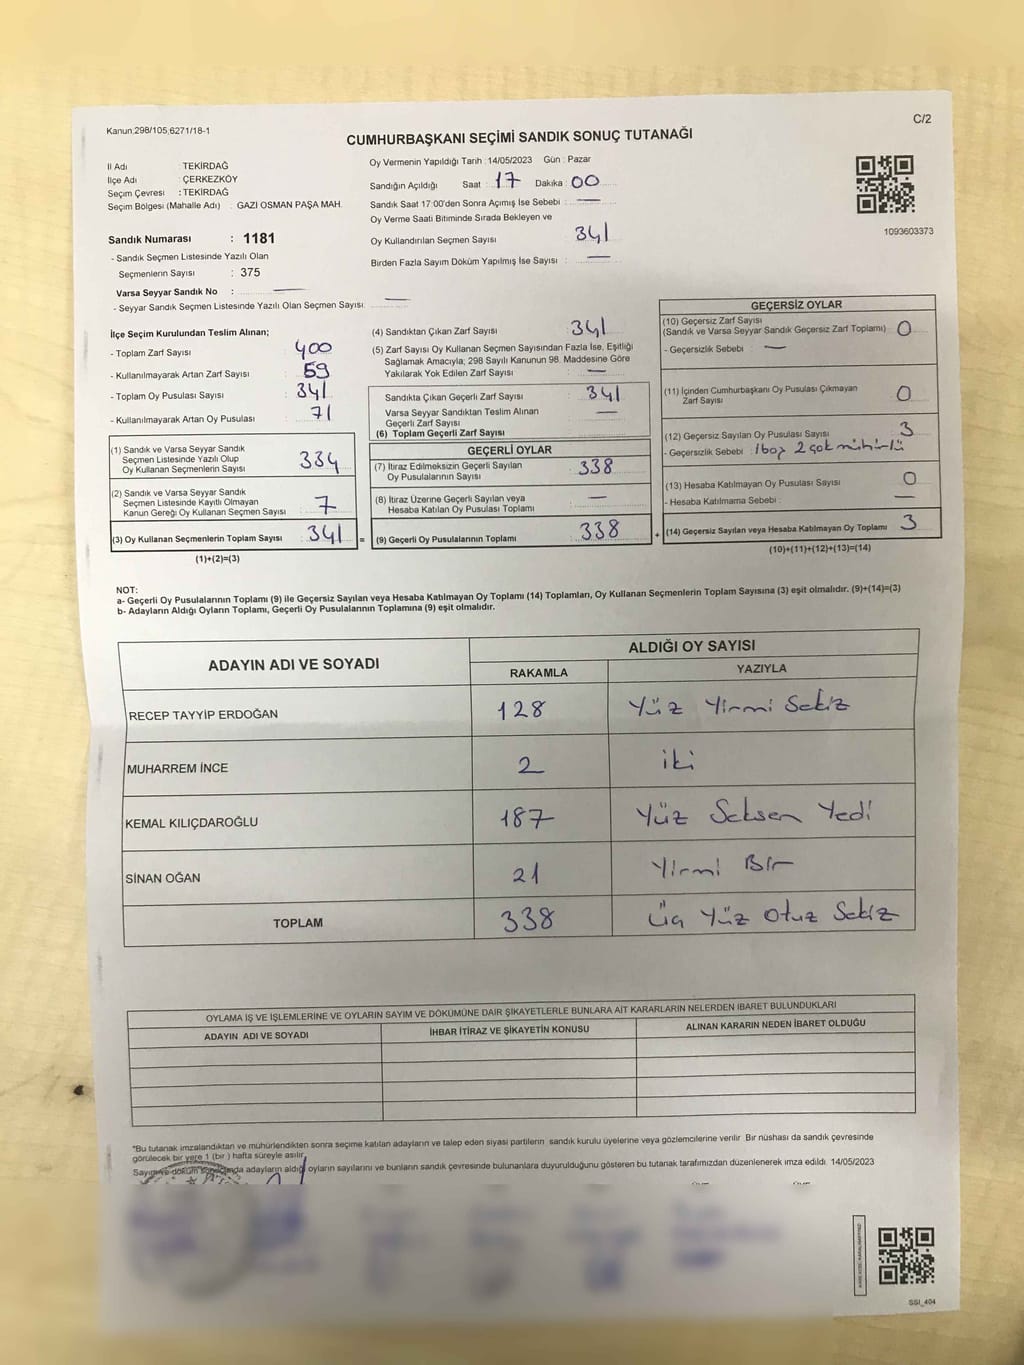 Kanun,298/105,6271/18-1
C/2
CUMHURBAŞKANI SEÇİMİ SANDIK SONUÇ TUTANAĞI
İl Adı : TEKİRDAĞ
İlçe Adı : ÇERKEZKÖY
Seçim Çevresi : TEKİRDAĞ
Seçim Bölgesi (Mahalle Adı) : GAZİ OSMAN PAŞA MAH.
Sandık Numarası : 1181
- Sandık Seçmen Listesinde Yazılı Olan
Seçmenlerin Sayısı : 375
Varsa Seyyar Sandık No : —
- Seyyar Sandık Seçmen Listesinde Yazılı Olan Seçmen Sayısı: —
Oy Vermenin Yapıldığı Tarih :14/05/2023 Gün : Pazar
Sandığın Açıldığı Saat : 17 Dakika : 00
Sandık Saat 17:00'den Sonra Açımış İse Sebebi : —
Oy Verme Saati Bitiminde Sırada Bekleyen ve
Oy Kullandırılan Seçmen Sayısı 341
Birden Fazla Sayım Döküm Yapılmış İse Sayısı : —
1093603373
İlçe Seçim Kurulundan Teslim Alınan;
- Toplam Zarf Sayısı 400
- Kullanılmayarak Artan Zarf Sayısı : 59
- Toplam Oy Pusulası Sayısı : 341
- Kullanılmayarak Artan Oy Pusulası : 71
(1) Sandık ve Varsa Seyyar Sandık
Seçmen Listesinde Yazılı Olup
Oy Kullanan Seçmenlerin Sayısı : 334
(2) Sandık ve Varsa Seyyar Sandık
Seçmen Listesinde Kayıtlı Olmayan
Kanun Gereği Oy Kullanan Seçmen Sayısı : 7
(3) Oy Kullanan Seçmenlerin Toplam Sayısı : 341 =
(1)+(2)=(3)
(4) Sandıktan Çıkan Zarf Sayısı : 341
(5) Zarf Sayısı Oy Kullanan Seçmen Sayısından Fazla İse, Eşitliği
Sağlamak Amacıyla; 298 Sayılı Kanunun 98. Maddesine Göre
Yakılarak Yok Edilen Zarf Sayısı : —
Sandıkta Çıkan Geçerli Zarf Sayısı : 341
Varsa Seyyar Sandıktan Teslim Alınan
Geçerli Zarf Sayısı : —
(6) Toplam Geçerli Zarf Sayısı :
GEÇERLİ OYLAR
(7) İtiraz Edilmeksizin Geçerli Sayılan
Oy Pusulalarının Sayısı : 338
(8) İtiraz Üzerine Geçerli Sayılan veya
Hesaba Katılan Oy Pusulası Toplamı : —
(9) Geçerli Oy Pusulalarının Toplamı : 338 +
GEÇERSİZ OYLAR
(10) Geçersiz Zarf Sayısı
(Sandık ve Varsa Seyyar Sandık Geçersiz Zarf Toplamı) : 0
- Geçersizlik Sebebi : —
(11) İçinden Cumhurbaşkanı Oy Pusulası Çıkmayan
Zarf Sayısı : 0
(12) Geçersiz Sayılan Oy Pusulası Sayısı : 3
- Geçersizlik Sebebi : 1 boş 2 çok mühürlü
(13) Hesaba Katılmayan Oy Pusulası Sayısı : 0
- Hesaba Katılmama Sebebi : —
(14) Geçersiz Sayılan veya Hesaba Katılmayan Oy Toplamı : 3
(10)+(11)+(12)+(13)=(14)
NOT:
a- Geçerli Oy Pusulalarının Toplamı (9) ile Geçersiz Sayılan veya Hesaba Katılmayan Oy Toplamı (14) Toplamları, Oy Kullanan Seçmenlerin Toplam Sayısına (3) eşit olmalıdır. (9)+(14)=(3)
b- Adayların Aldığı Oyların Toplamı, Geçerli Oy Pusulalarının Toplamına (9) eşit olmalıdır.
ADAYIN ADI VE SOYADI
ALDIĞI OY SAYISI
RAKAMLA YAZIYLA
RECEP TAYYİP ERDOĞAN 128 Yüz Yirmi Sekiz
MUHARREM İNCE 2 iki
KEMAL KILIÇDAROĞLU 187 Yüz Seksen Yedi
SİNAN OĞAN 21 Yirmi Bir
TOPLAM 338 Üç Yüz Otuz Sekiz
OYLAMA İŞ VE İŞLEMLERİNE VE OYLARIN SAYIM VE DÖKÜMÜNE DAİR ŞİKAYETLERLE BUNLARA AİT KARARLARIN NELERDEN İBARET BULUNDUKLARI
ADAYIN ADI VE SOYADI İHBAR İTİRAZ VE ŞİKAYETİN KONUSU ALINAN KARARIN NEDEN İBARET OLDUĞU
"Bu tutanak imzalandıktan ve mühürlendikten sonra seçime katılan adayların ve talep eden siyasi partilerin sandık kurulu üyelerine veya gözlemcilerine verilir. Bir nüshası da sandık çevresinde
görülecek bir yere 1 (bir) hafta süreyle asılır.
Sayım ve döküm adayların aldığı oyların sayılarını ve bunların sandık çevresinde bulunanlara duyurulduğunu gösteren bu tutanak tarafımızdan düzenlenerek imza edildi. 14/05/2023
SSI_404